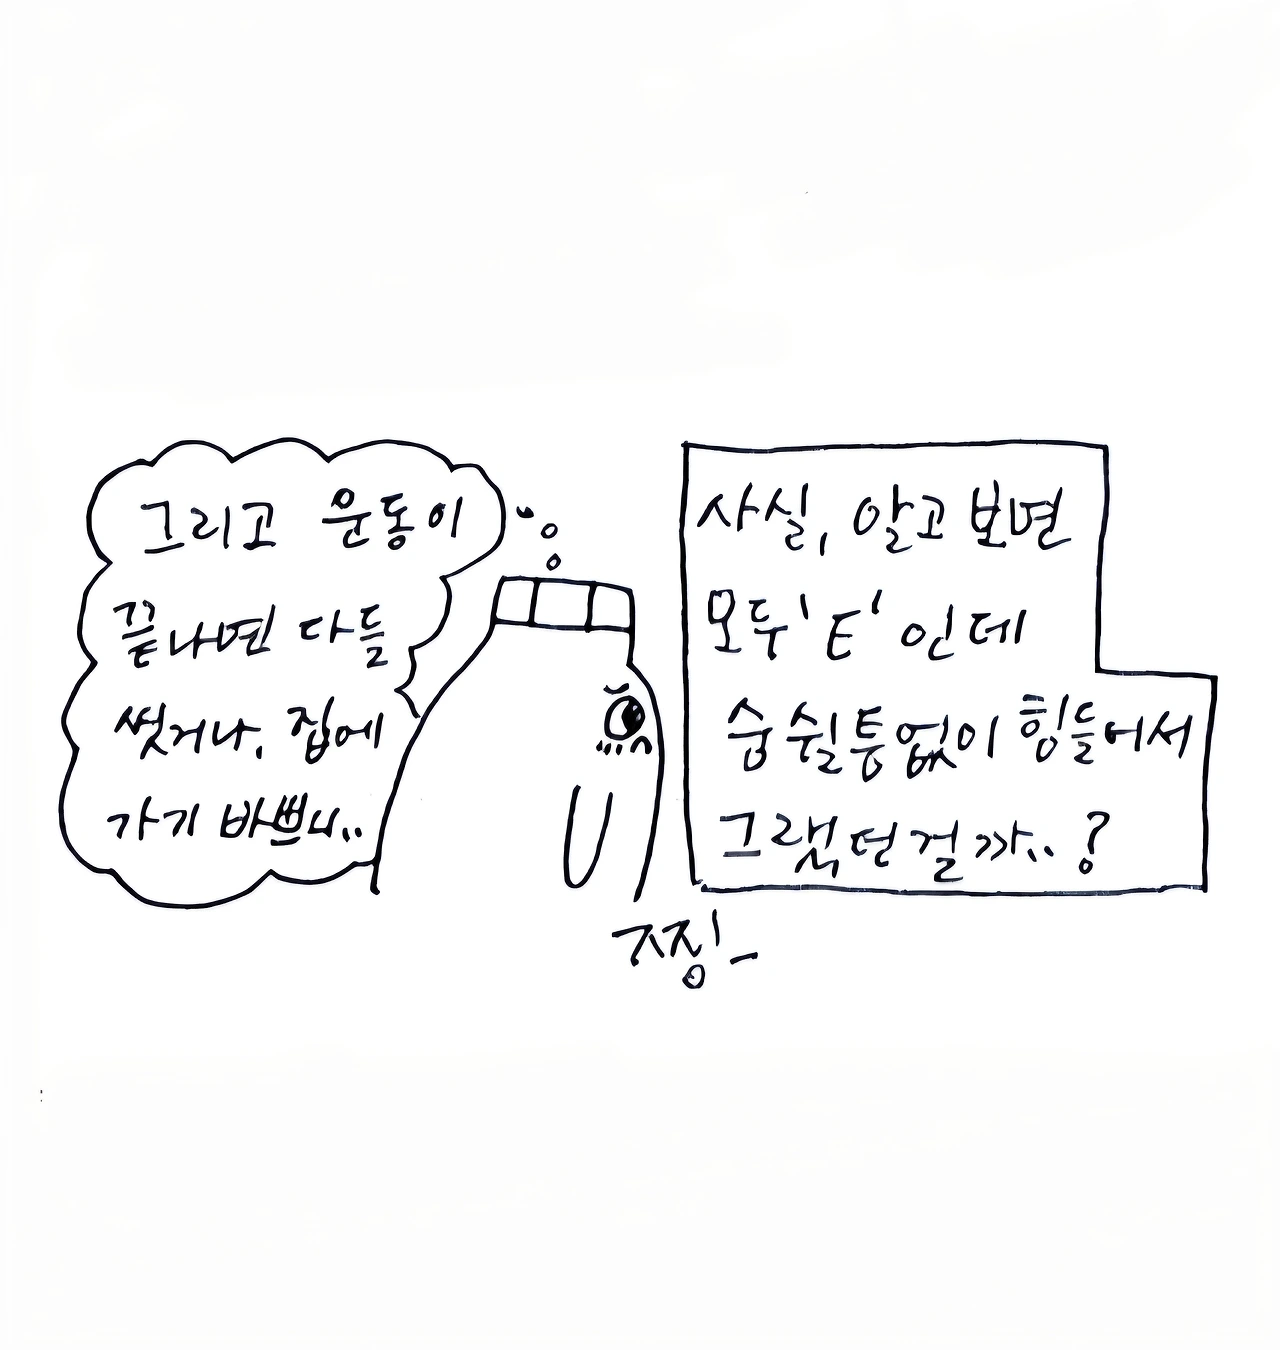 그리고 운동이
끝나면 다들
씻거나, 집에
가기 바쁘니..
사실, 알고 보면
모두 'E' 인데
숨 쉴틈없이 힘들어서
그랬던걸까..?
지징-